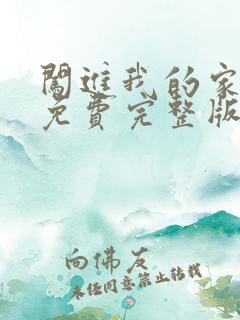 闖進我的家
免費完整版
向佛友
未经同意禁止转载